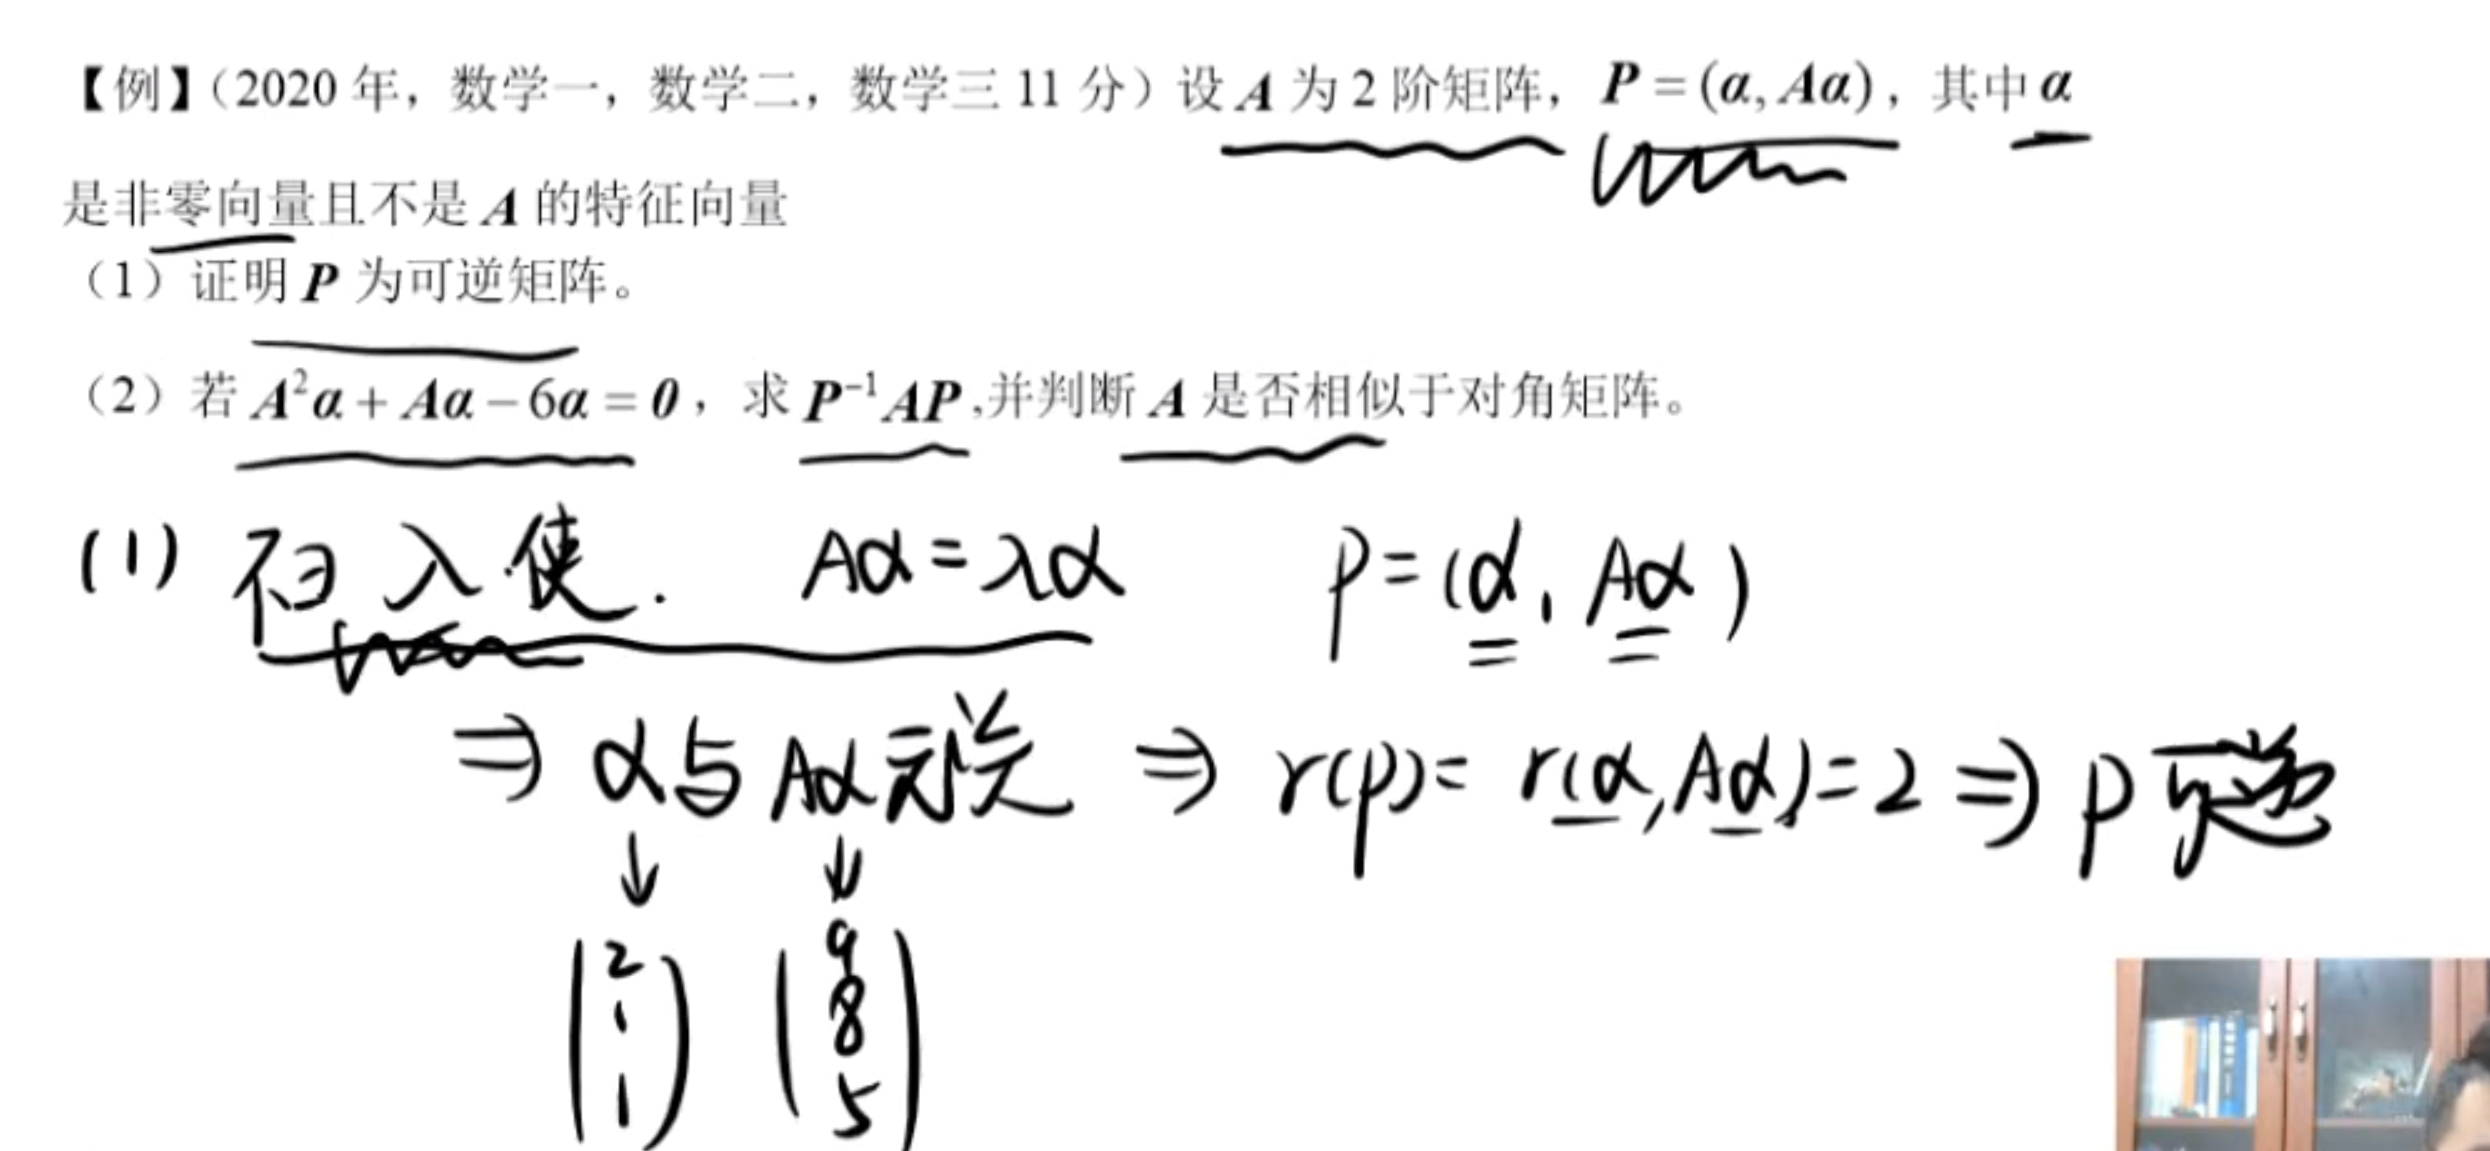 【例】（2020 年，数学一，数学二，数学三 11 分）设 A 为 2 阶矩阵，P = (α, Aα)，其中 α
是非零向量且不是 A 的特征向量
（1）证明 P 为可逆矩阵。
（2）若 A²α + Aα − 6α = 0，求 P⁻¹AP,并判断 A 是否相似于对角矩阵。
(1) 不∃ λ 使. Aα = λα P = (α, Aα)
⇒ α与Aα无关 ⇒ r(P) = r(α, Aα) = 2 ⇒ P 可逆
↓ ↓
(2 1 1) (9 8 5)